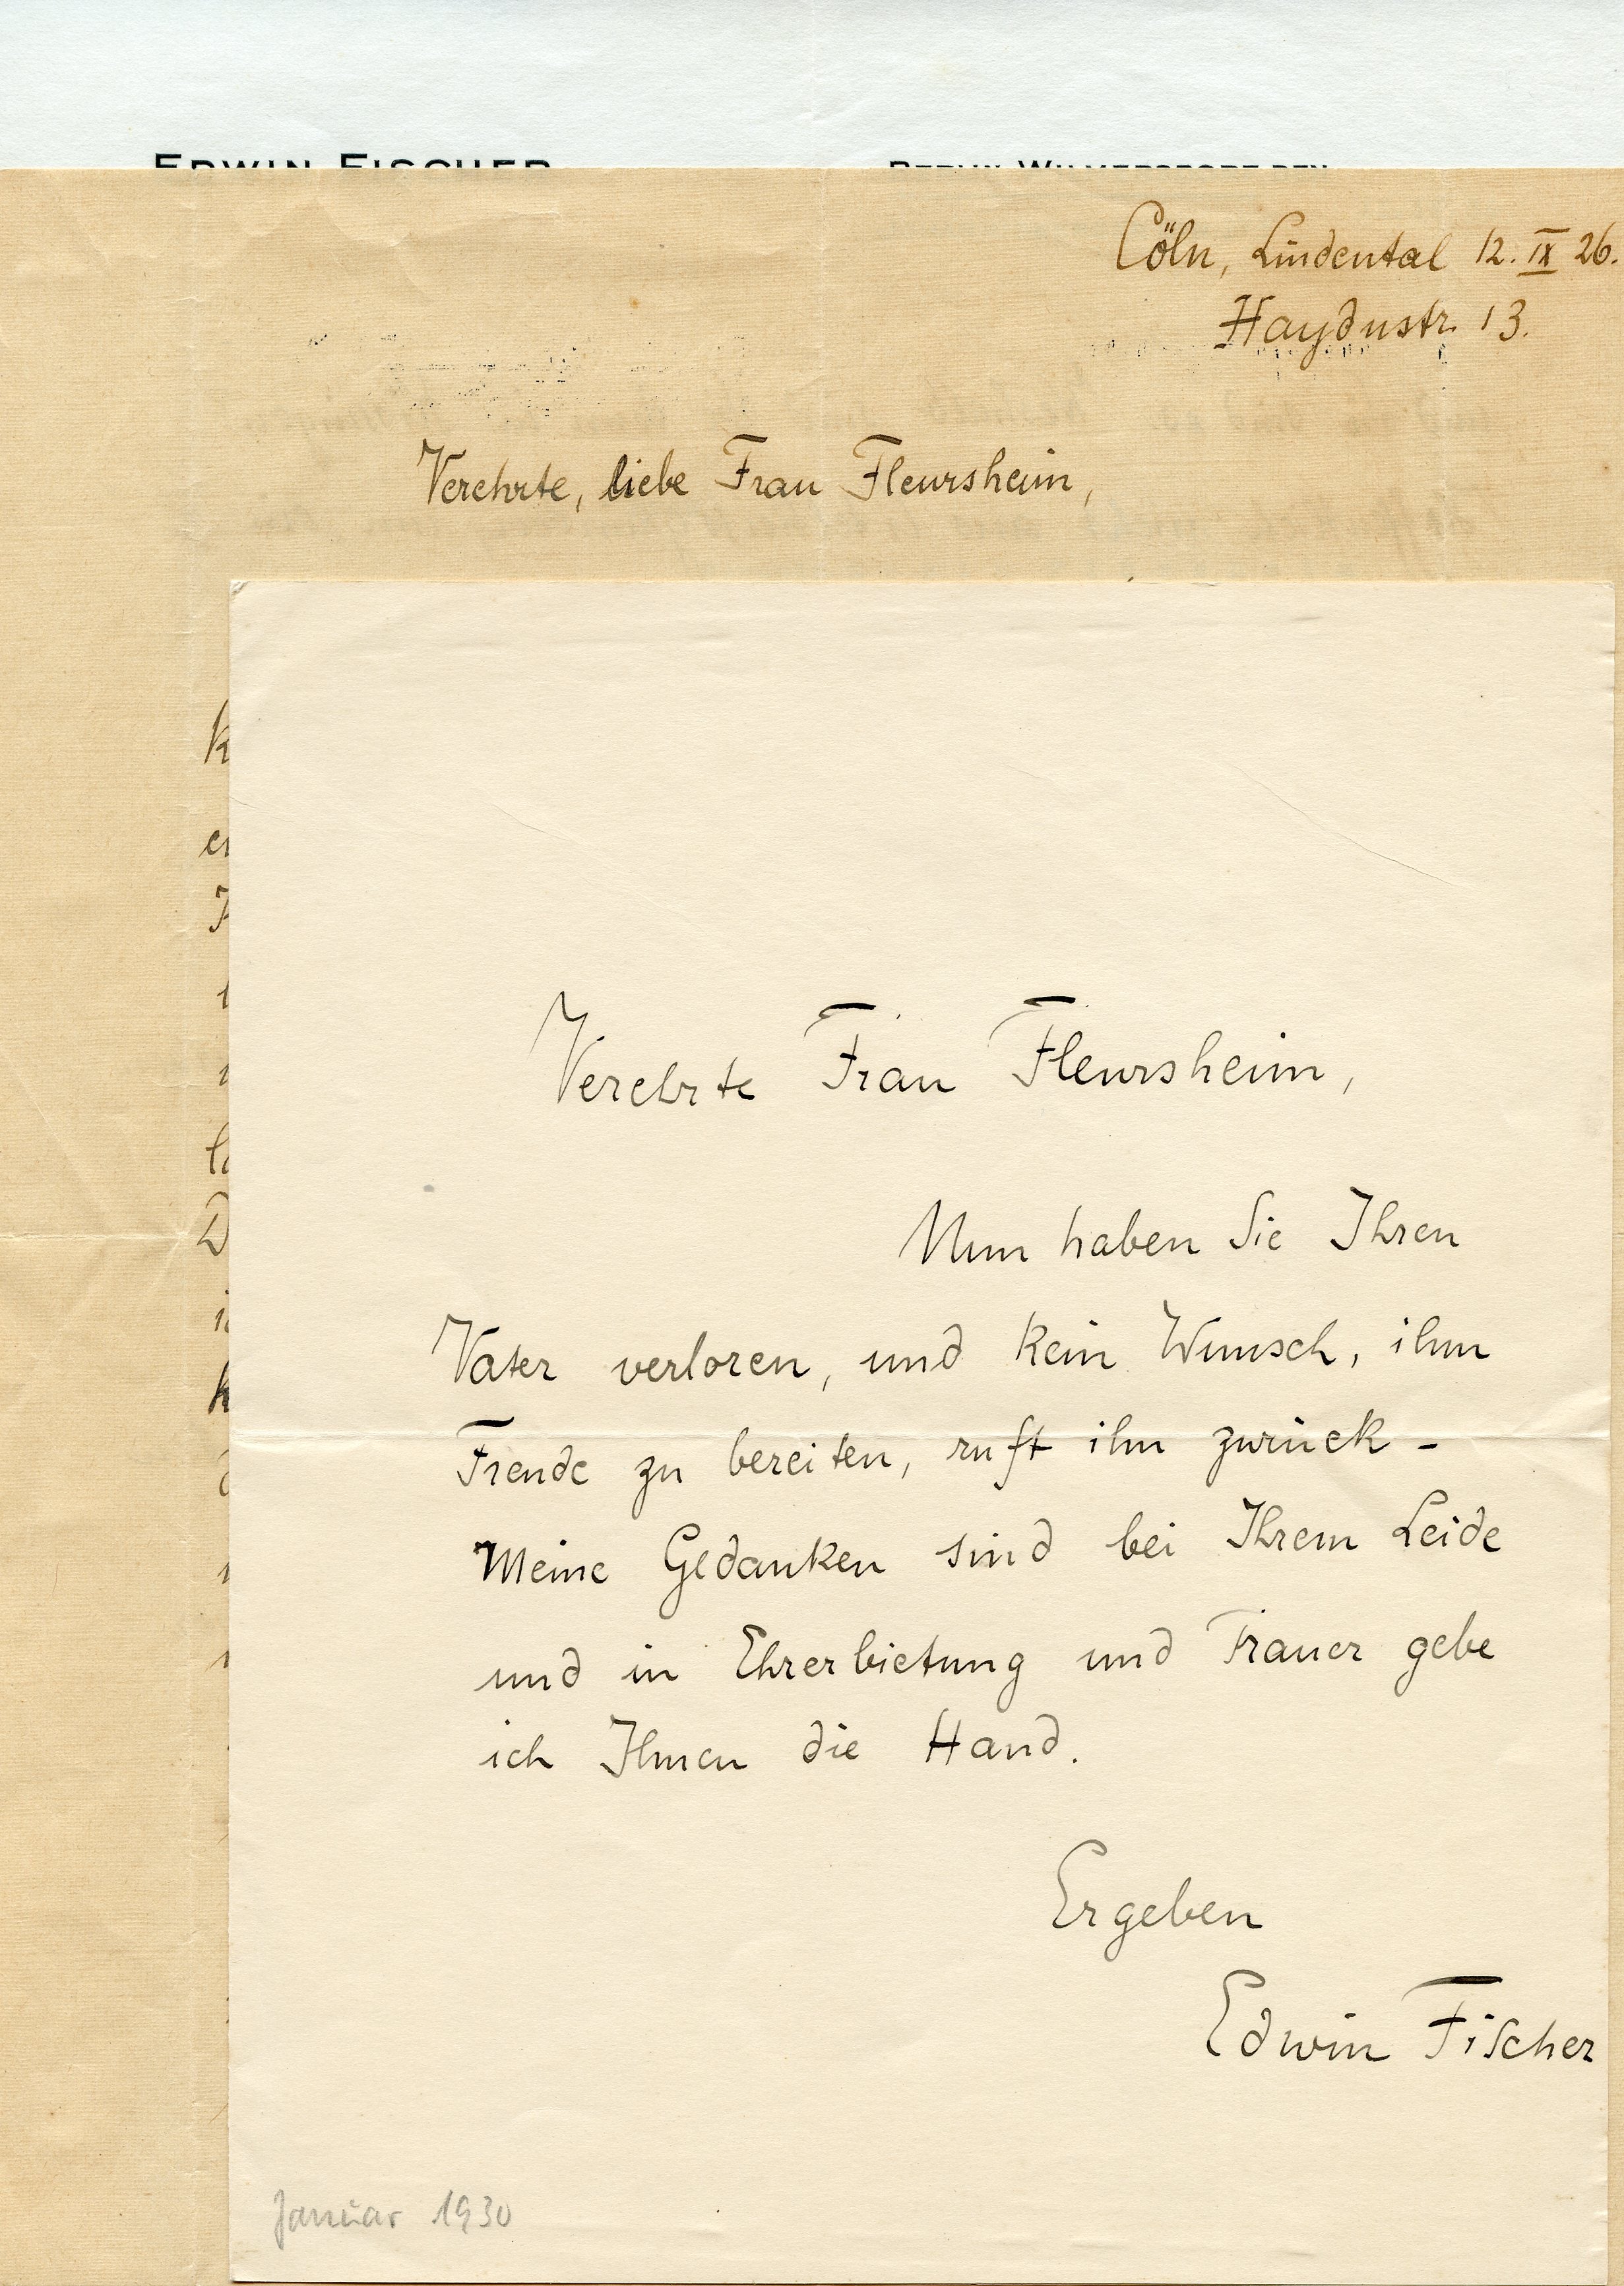 Cöln, Lindental 12. IX 26.
Haydnstr. 13.
Verehrte, liebe Frau Fleursheim,
Verehrte Frau Fleursheim,
Nun haben Sie Ihren
Vater verloren, und kein Wunsch, ihm
Freude zu bereiten, ruft ihn zurück -
Meine Gedanken sind bei Ihrem Leide
und in Ehrerbietung und Trauer gebe
ich Ihnen die Hand.
Ergeben
Edwin Fischer
Januar 1930